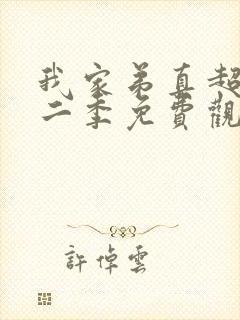 我家弟真超
二季免費觀
許倬雲